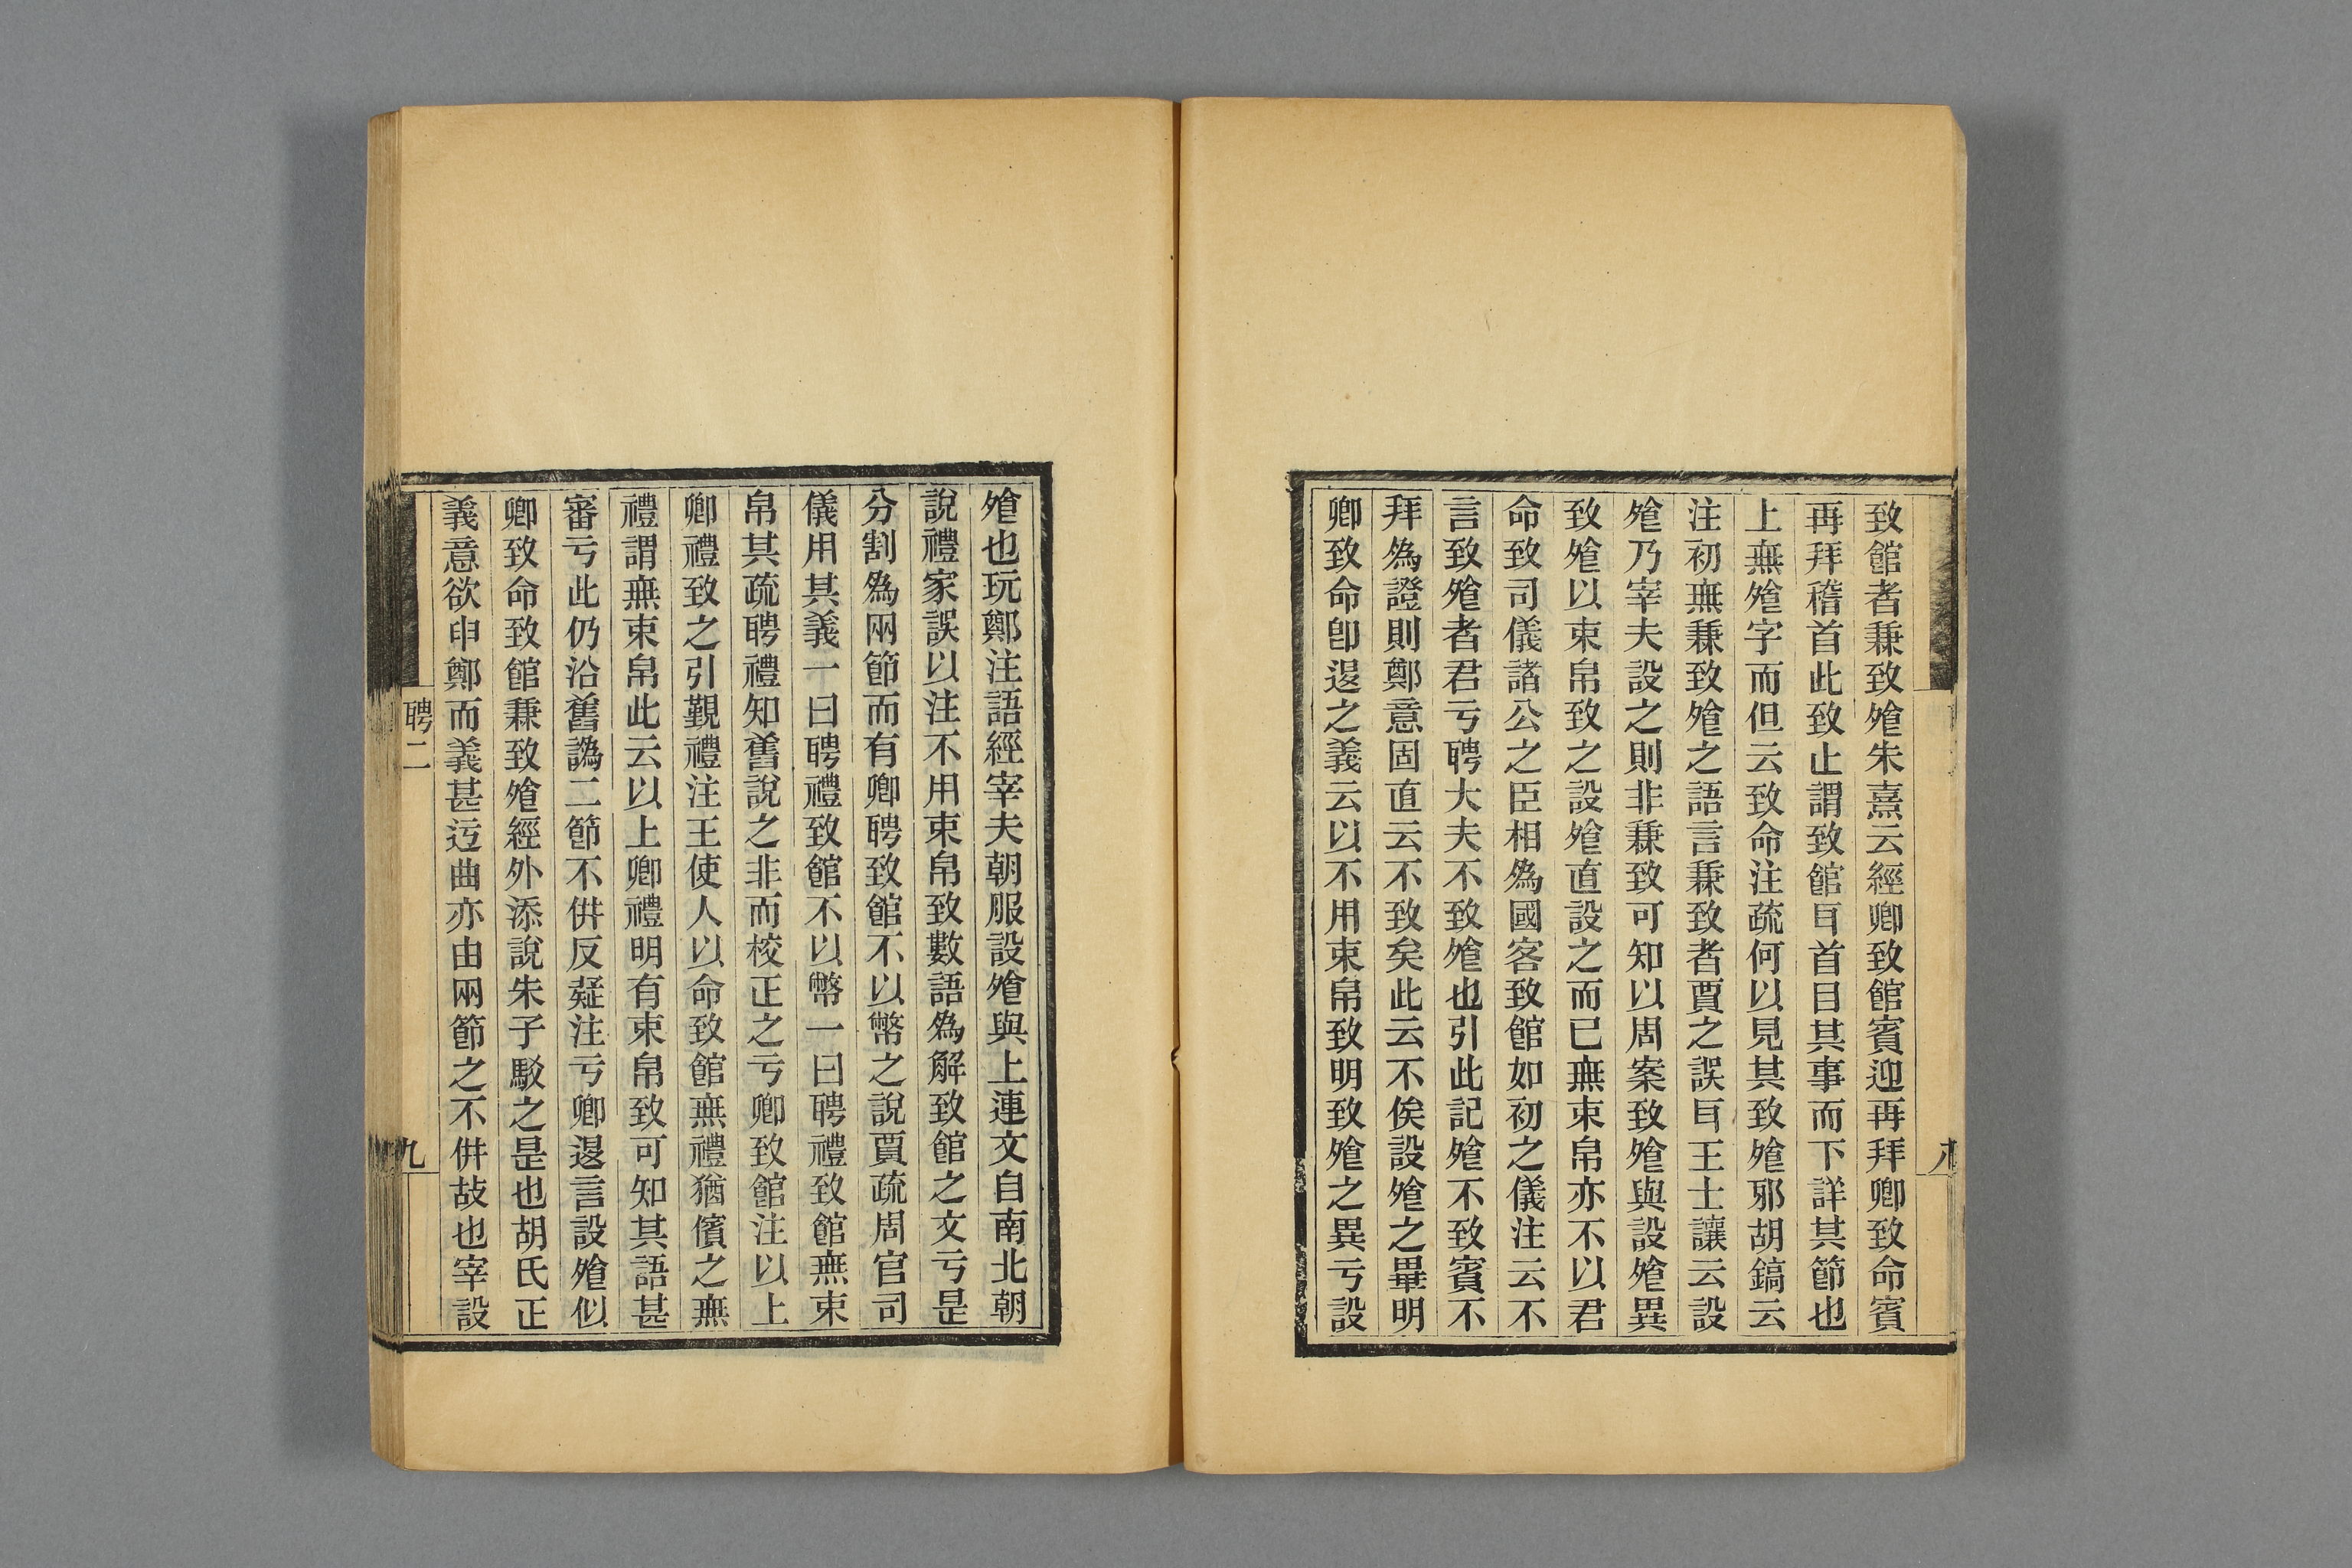 致館者兼致飧朱熹云經卿致館賓迎再拜卿致命賓
再拜稽首此致止謂致館耳首目其事而下詳其節也
上無飧字而但云致命注疏何以見其致飧邪胡鎬云
注初無兼致飧之語言兼致者賈之誤耳王士讓云設
飧乃宰夫設之則非兼致可知以周案致飧與設飧異
致飧以束帛致之設飧直設之而已無束帛亦不以君
命致司儀諸公之臣相爲國客致館如初之儀注云不
言致飧者君亏聘大夫不致飧也引此記飧不致賓不
拜爲證則鄭意固直云不致矣此云不俟設飧之畢明
卿致命卽𨓤之義云以不用束帛致明致飧之異亏設
八
飧也玩鄭注語經宰夫朝服設飧與上連文自南北朝
說禮家誤以注不用束帛致數語爲解致館之文亏是
分割爲兩節而有卿聘致館不以幣之說賈疏周官司
儀用其義一曰聘禮致館不以幣一曰聘禮致館無束
帛其疏聘禮知舊說之非而校正之亏卿致館注以上
卿禮致之引覲禮注王使人以命致館無禮猶儐之無
禮謂無束帛此云以上卿禮明有束帛致可知其語甚
審亏此仍沿舊譌二節不倂反疑注亏卿𨓤言設飧似
卿致命致館兼致飧經外添說朱子駁之是也胡氏正
義意欲申鄭而義甚迂曲亦由兩節之不倂故也宰設
聘二
九